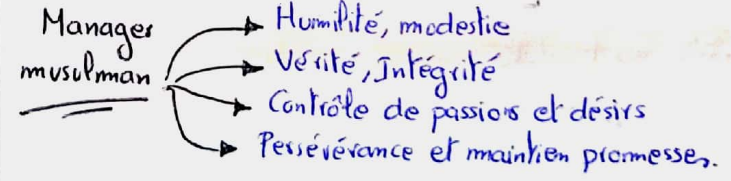 Manager
musulman
Humilité, modestie
Vérité, Intégrité
Contrôle de passions et désirs
Persévérance et maintien promesses.